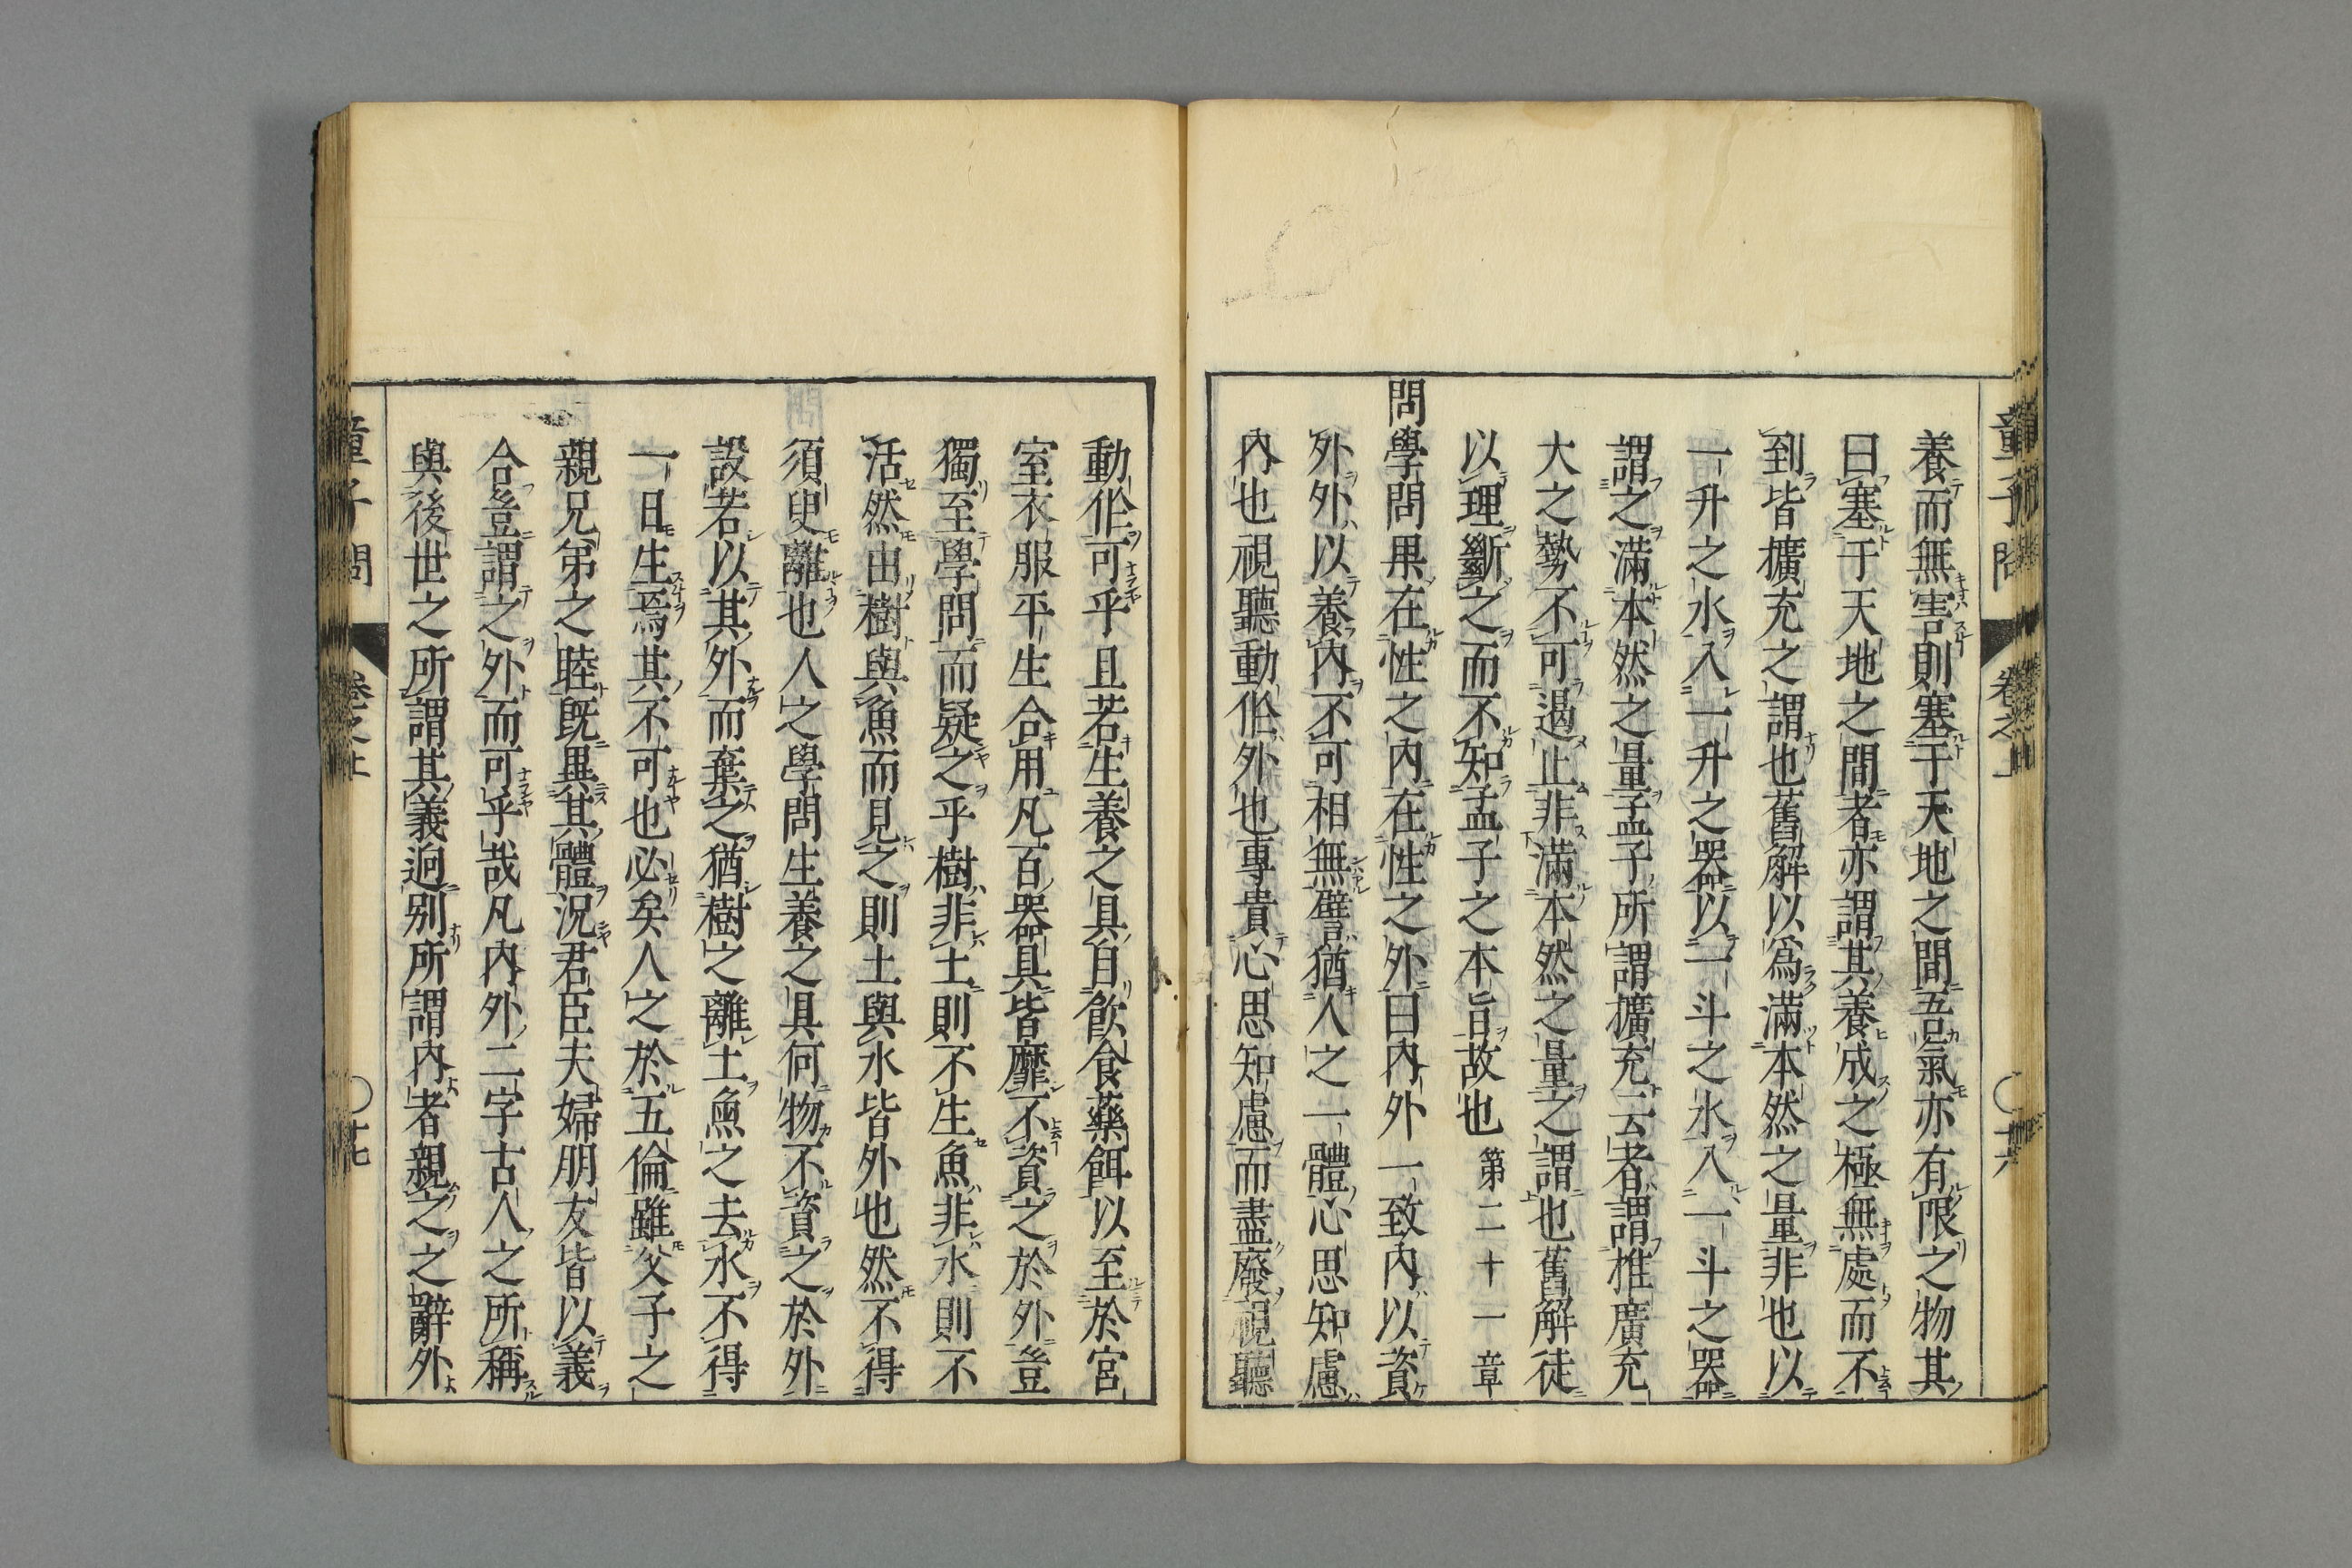 養而無害則塞于天地之間吾氣亦有限之物其
曰塞于天地之間者亦謂其養成之極無處而不
到皆擴充之謂也舊解以爲滿本然之量非也以
一升之水入一升之器以一斗之水入一斗之器
謂之滿本然之量孟子所謂擴充云者謂推廣充
大之勢不可遏止非滿本然之量之謂也舊解徒
以理斷之而不知孟子之本旨故也 第二十一章
問學問果在性之內在性之外曰內外一致內以資
外外以養內不可相無譬猶人之一體心思知慮
內也視聽動作外也專貴心思知慮而盡廢視聽
童子問 卷之上 〇十六
動作可乎且若生養之具自飮食藥餌以至於宮
室衣服平生合用凡百器具皆靡不資之於外豈
獨至學問而疑之乎樹非土則不生魚非水則不
活然由樹與魚而見之則土與水皆外也然不得
須臾離也人之學問生養之具何物不資之於外
設若以其外而棄之猶樹之離土魚之去水不得
一日生焉其不可也必矣人之於五倫雖父子之
親兄弟之睦既異其體況君臣夫婦朋友皆以義
合豈謂之外而可乎哉凡內外二字古人之所稱
與後世之所謂其義迥別所謂內者親之之辭外
童子問 卷之上 〇十七